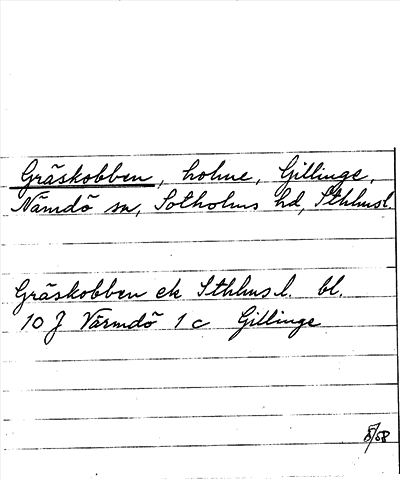 Gräskobben, holme, Gillinge,
Nämdö sn, Sotholms hd, Sthlmsl.
Gräskobben ek Sthlmsl. bl.
10 J Värmdö 1 c Gillinge
/58